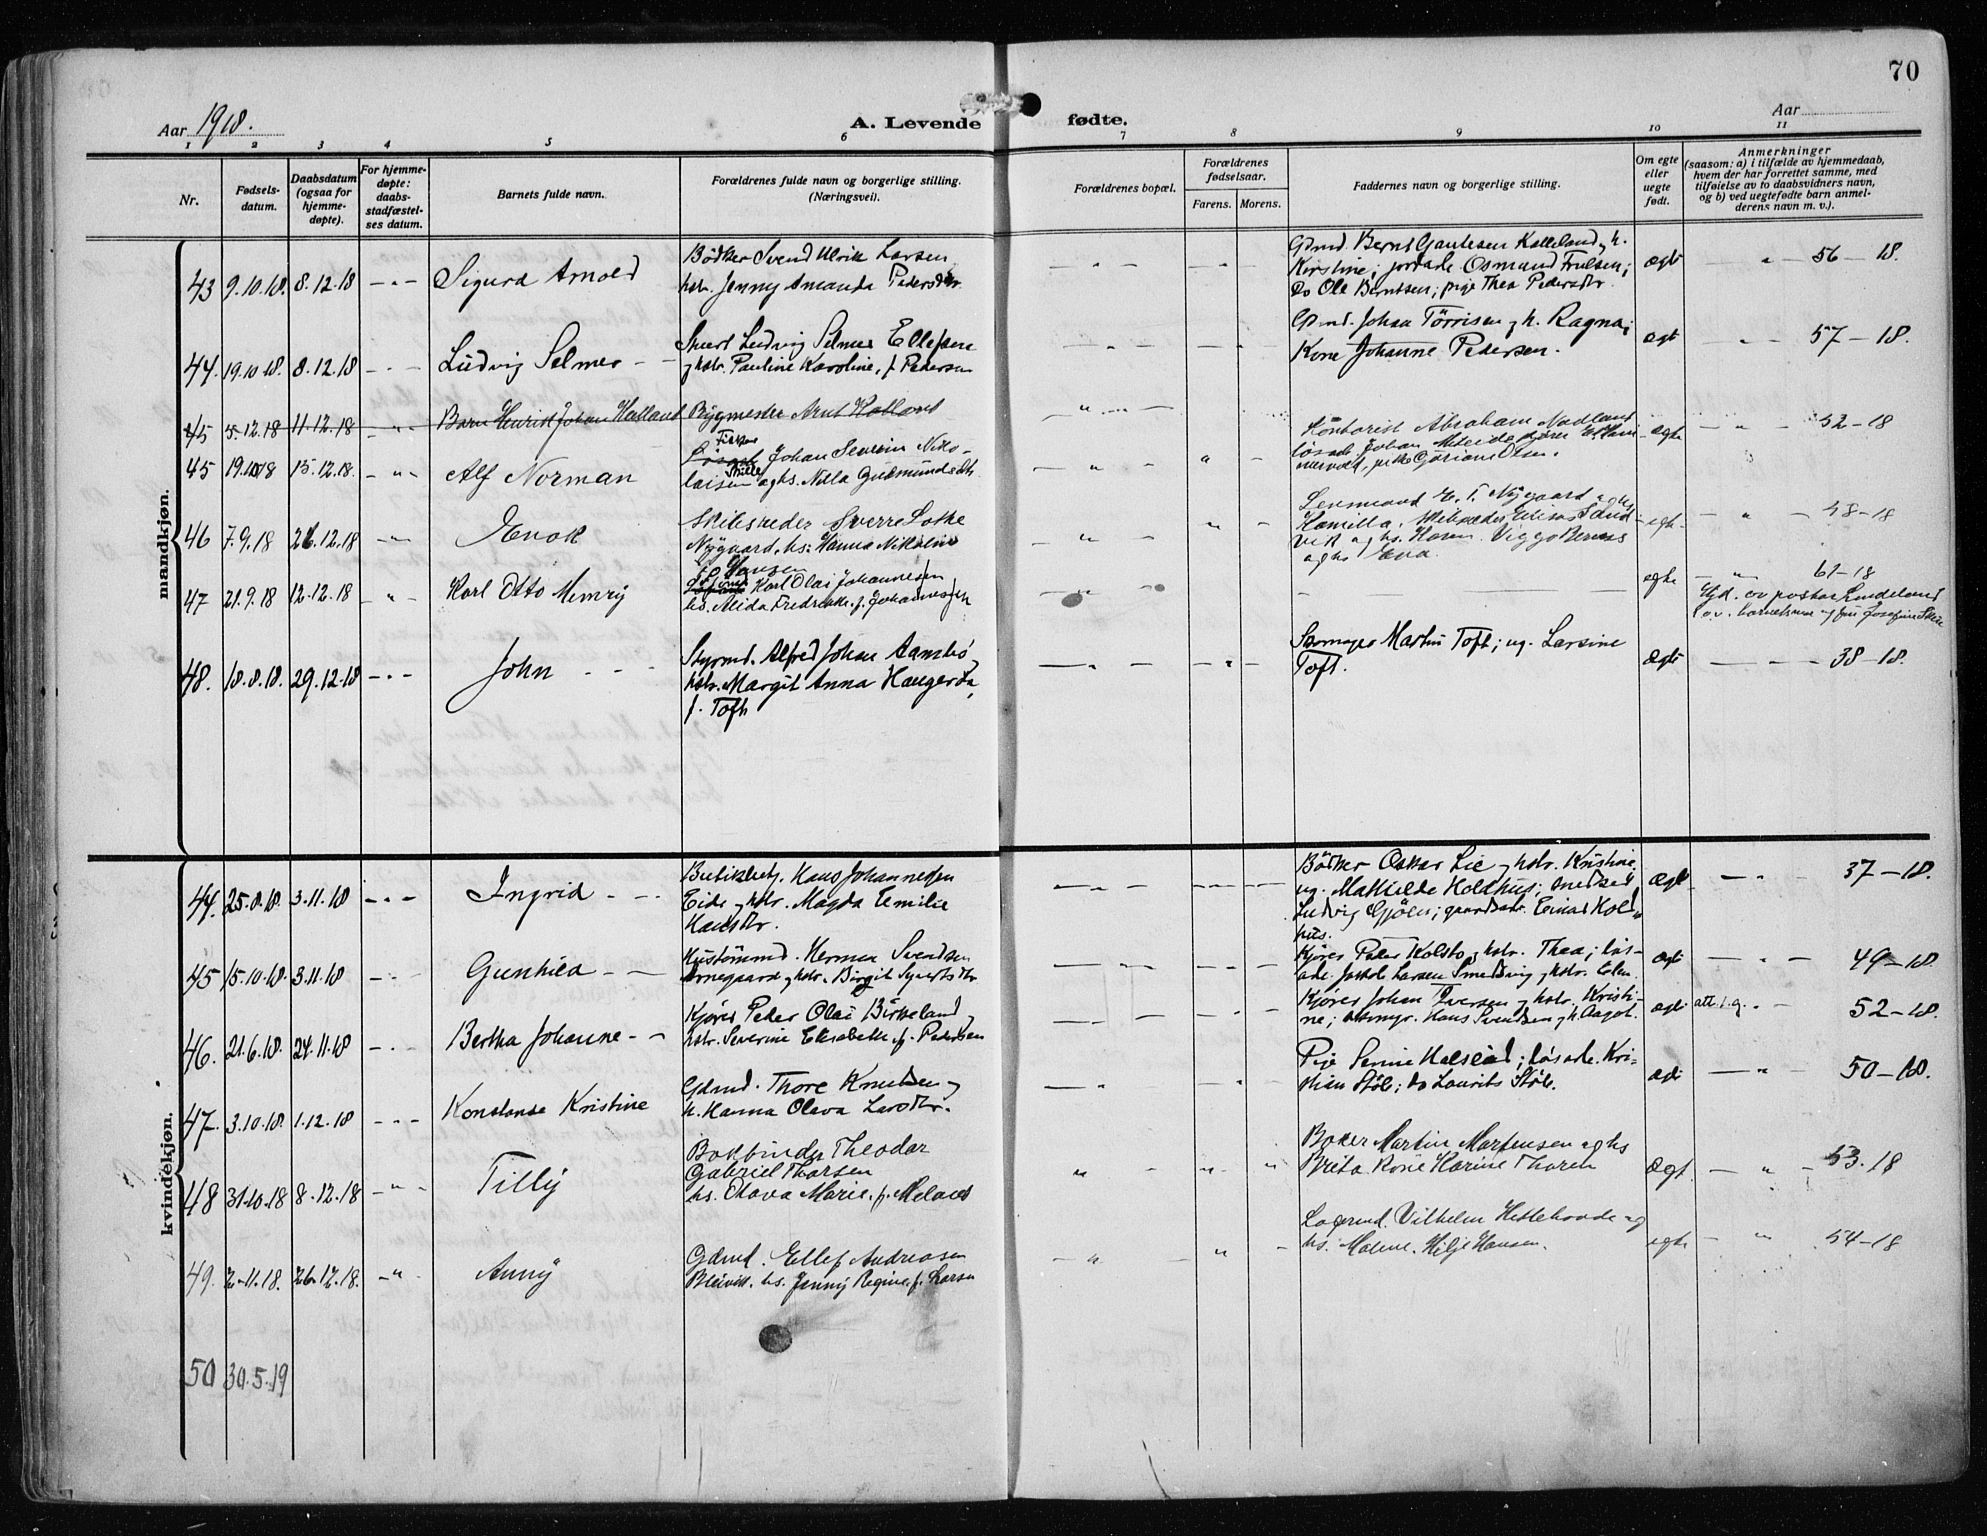 70
Aar 1918.
A. Levende fødte.
Aar
1 2 3 4 5 6 7 8 9 10 11
Nr.
Fødsels-
datum.
Daabsdatum
(ogsaa for
hjemme-
døpte).
For hjemme-
døpte:
daabs-
stadfæstel-
ses datum.
Barnets fulde navn.
Forældrenes fulde navn og borgerlige stilling.
(Næringsvei).
Forældrenes bopæl.
Forældrenes
fødselsaar.
Farens. Morens.
Faddernes navn og borgerlige stilling.
Om egte
eller
uegte
født.
Anmerkninger
(saasom: a) i tilfælde av hjemmedaab,
hvem der har forrettet samme, med
tilføielse av to daabsvidners navn,
og b) ved uegtefødte barn anmel-
derens navn m. v.).
mandkjøn.
43 9.10.18. 8.12.18 Sigurd Arnold
Bødker Svend Ulrik Larsen
hstr. Jenny Amanda Pedersdtr.
Gdmd. Bernt Gautesen Kalleland, h.
Kirstine; Osmund
do Ole Berntsen; pige Thea Pedersdtr.
ægte 56 – 18.
44. 19.10.18. 8.12.18 Ludvig Selmer
Ludvig Selmer Ellefsen
hstr. Pauline Karoline, f. Pedersen
Gdmd. Johan Tørrisen, h. Ragna;
Kone Johanne Pedersen.
ægt 57 – 18.
45 5.12.18 11.12.18 Barn Henrik Johan Halland Bygmester Arnt Halland
45 19.10.18 15.12.18. Alf Norman
Fisker
Johan Severin Niko-
laisen Skille og hs. Nilla Gudmundsdtr.
Kontorist Abraham
Johan
Gurianne Olsen.
egte 52 – 18
46 7.9.18 26.12.18 Enok
Skibsreder Sverre Lothe
Nygaard. hs. Hanna Nikoline
Hansen
Lensmand E. T. Nygaard og hs
Kamilla. Skibsreder
Viggo
og hs Eva.
egte 48 – 18
47 21.9.18 12.12.18 Karl Otto Henry
Karl Olai Johannesen
hs. Alida Fredrikke f. Johannesen
egte 61 – 18
Hjd. av pastor Lindeland
48. 18.8.18. 29.12.18 John
Styrmd. Alfred Johan Aamsbø
hstr. Margit Anna Haugerta,
f. Toft
Skomager Martin Toft; ug. Larsine
Toft.
ægte 38 – 18.
kvindekjøn.
44. 25.8.18 3.11.18 Ingrid
Butikbetj. Hans Johannessen
Eide, hstr. Magda Emilie
Hansdtr.
Bødker Oskar Lie, hstr. Kristine,
ug. Mathilde Holdhus; snedker
Ludvig Gjølen; gaardsarb. Einar Hold-
hus.
ægte 37 – 18.
45 15.10.18. 3.11.18 Gunhild
Herman Svendsen
Ornegaard, hstr. Birgit Synertsdtr
Kjører Peder Kolstø, hstr. Thea; løs-
arb. Jakob Larsen Smedsvig, hstr. Elen
ægt 49 – 18.
46. 21.6.18. 24.11.18 Bertha Johanne
Kjører Peder Olai Birkeland,
hstr. Severine Elisabeth, f. Pedersen
Kjører Johan Iversen, hstr. Kristi-
ne; skomgr. Hans Svendsen, h. Aagot.
ægte att. l. g. 52 – 18.
47. 3.10.18. 1.12.18 Konstanse Kristine
Gdmd. Thore Knudsen,
h. Hanna Olava Larsdtr.
Pige Serine Halseid; løsarb. Kri-
stian Støle; do Laurits Støle.
ægte 50 – 18.
48 31.10.18 8.12.18 Tilly
Bokbinder Theodor
Gabriel Thorsen
hs. Olava Marie. f. Meland
Baker Martin Mortensen og hs
Brita. Kone Karine Thorsen
ægt. 53.18
49. 2.11.18. 26.12.18. Anny
Gdmd. Ellef Andreasen
Bleivik. hs. Jenny Regine, f. Larsen
Lagermd. Vilhelm Hettehovde og
hs. Malene. Hilje Hansen.
egte 54 – 18
50 30.5.19